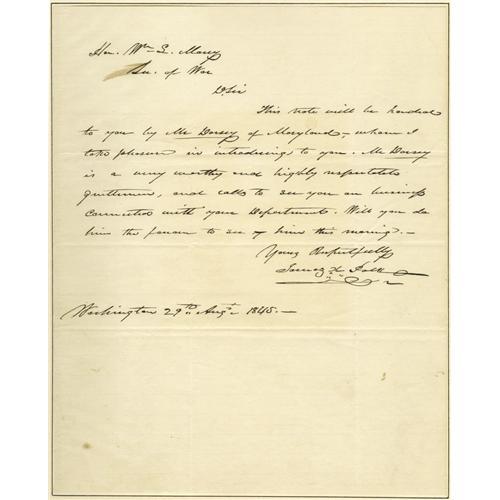 Hon. Wm L. Marcy
Sec. of War
D. Sir
This note will be handed
to you by Mr Dorsey of Maryland, whom I
take pleasure in introducing to you. Mr Dorsey
is a very worthy and highly respectable
gentleman, and calls to see you on business
connected with your Department. Will you do
him the favour to see him this morning. -
Yours Respectfully
James K. Polk
Washington 29th Aug't 1845. -